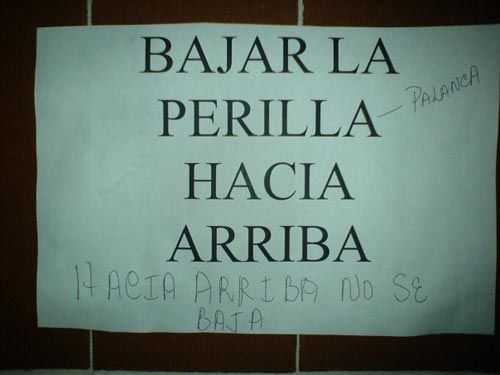 BAJAR LA
PERILLA
PALANCA
HACIA
ARRIBA
HACIA ARRIBA NO SE
BAJA